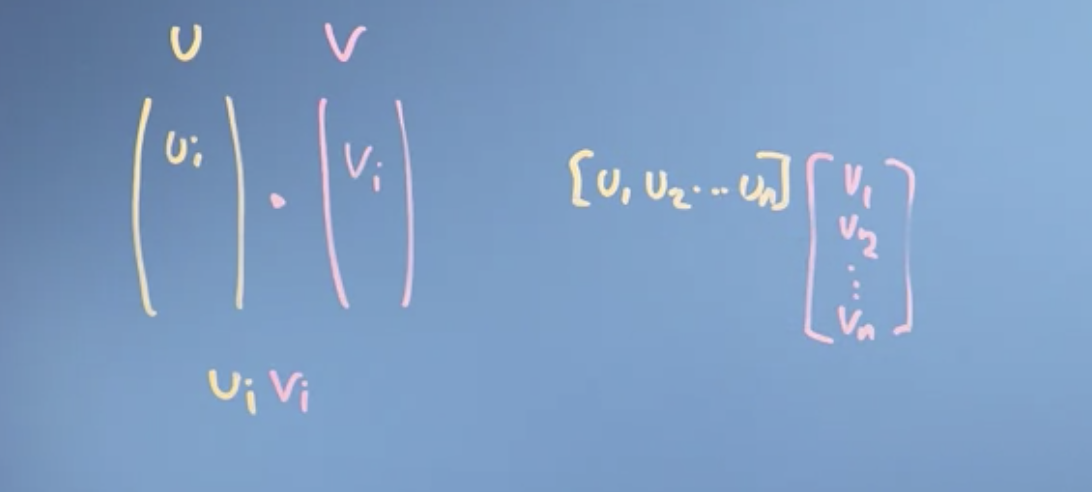 U V
Ui · Vi
[U1 U2 ... Un] [V1 V2 ⋮ Vn]
Ui Vi